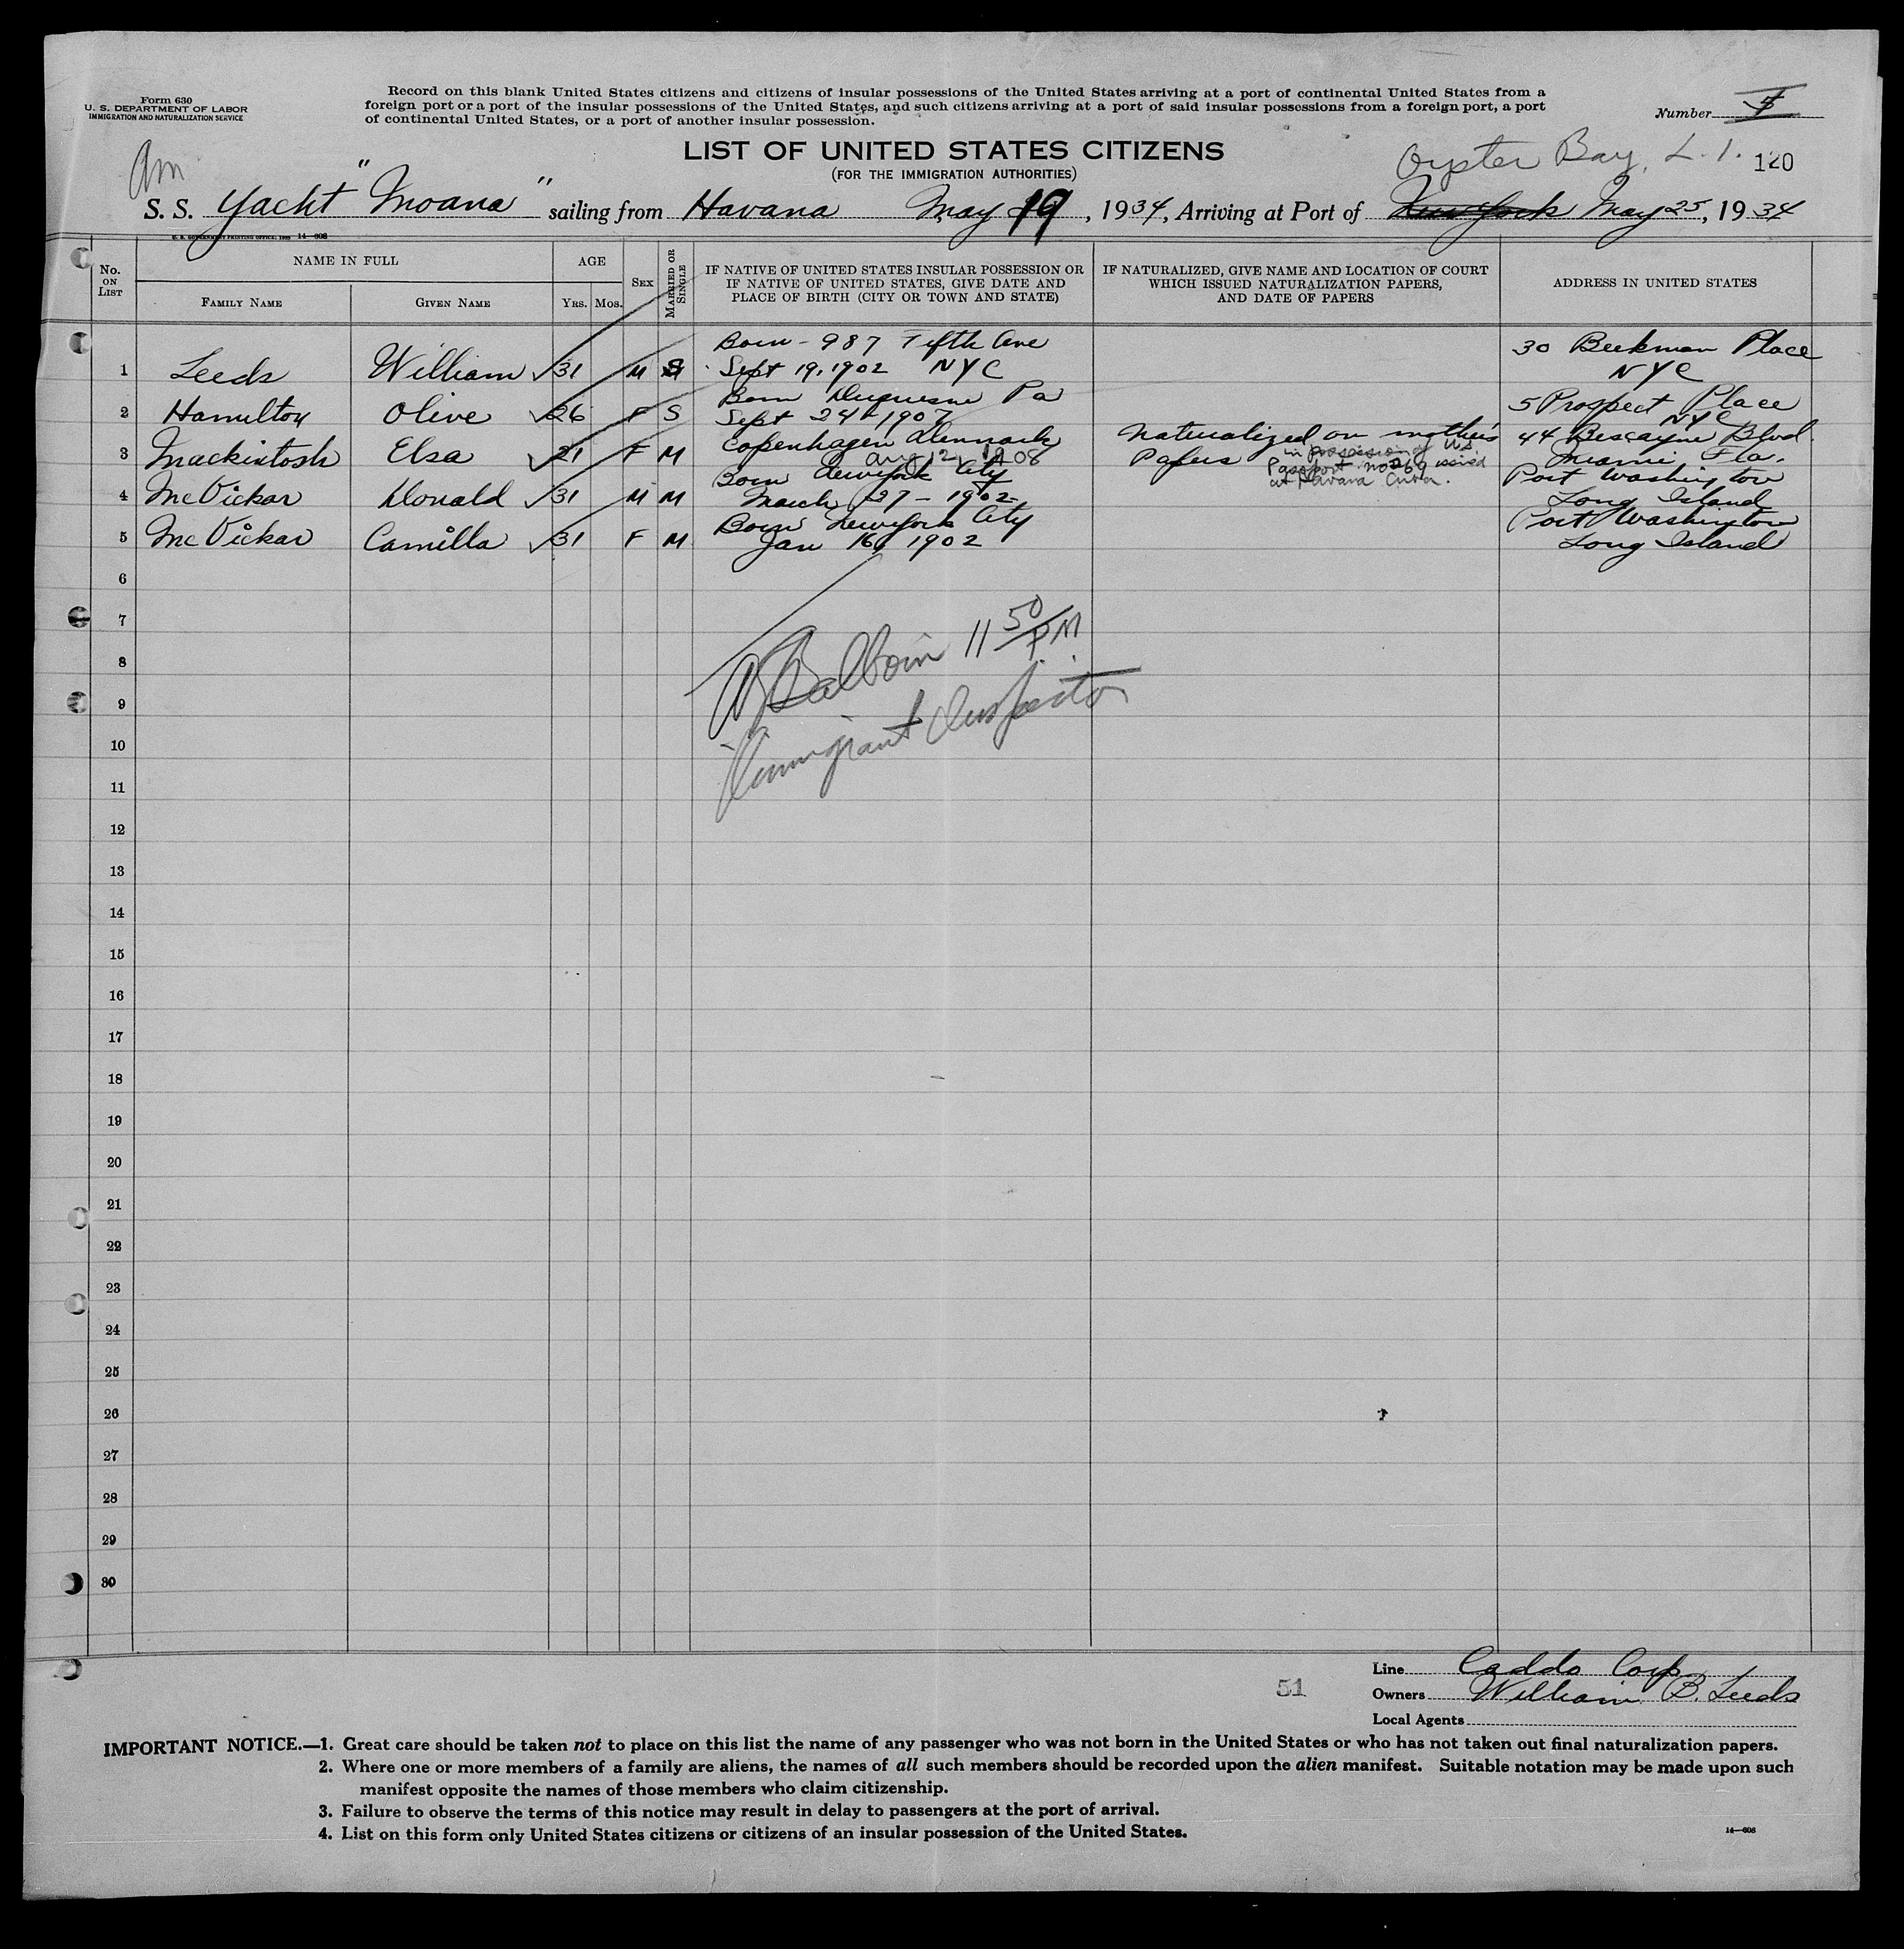 Form 630
U. S. DEPARTMENT OF LABOR
IMMIGRATION AND NATURALIZATION SERVICE
Record on this blank United States citizens and citizens of insular possessions of the United States arriving at a port of continental United States from a
foreign port or a port of the insular possessions of the United States, and such citizens arriving at a port of said insular possessions from a foreign port, a port
of continental United States, or a port of another insular possession.
Number
LIST OF UNITED STATES CITIZENS
(FOR THE IMMIGRATION AUTHORITIES)
Am
Oyster Bay, L. I. 120
S. S. Yacht "Moana" sailing from Havana May 19, 1934, Arriving at Port of New York May 25, 1934
U. S. GOVERNMENT PRINTING OFFICE: 14—608
No. ON LIST
NAME IN FULL
FAMILY NAME
GIVEN NAME
AGE
YRS. MOS.
SEX
MARRIED OR SINGLE
IF NATIVE OF UNITED STATES INSULAR POSSESSION OR
IF NATIVE OF UNITED STATES, GIVE DATE AND
PLACE OF BIRTH (CITY OR TOWN AND STATE)
IF NATURALIZED, GIVE NAME AND LOCATION OF COURT
WHICH ISSUED NATURALIZATION PAPERS,
AND DATE OF PAPERS
ADDRESS IN UNITED STATES
Born - 987 Fifth Ave 30 Beekman Place
1 Leeds William 31 M S Sept 19, 1902 NYC NYC
Born Duquesne Pa 5 Prospect Place
2 Hamilton Olive 26 F S Sept 24 - 1907 NYC
Copenhagen Denmark Naturalized on mother's 44 Biscayne Blvd.
3 Mackintosh Elsa 21 F M Aug 12, 1908 Papers Miami Fla.
in possession of US
Passport no 269 issued
at Havana Cuba.
Born New York City Port Washington
4 McVickar Donald 31 M M March 27 - 1902 Long Island
Born New York City Port Washington
5 McVickar Camilla 31 F M Jan 16, 1902 Long Island
6
7
8
Balboin 11 50 PM
9
Immigrant Inspector
10
11
12
13
14
15
16
17
18
19
20
21
22
23
24
25
26
27
28
29
30
51
Line Caddo Corp
Owners William B. Leeds
Local Agents
IMPORTANT NOTICE.—1. Great care should be taken not to place on this list the name of any passenger who was not born in the United States or who has not taken out final naturalization papers.
2. Where one or more members of a family are aliens, the names of all such members should be recorded upon the alien manifest. Suitable notation may be made upon such
manifest opposite the names of those members who claim citizenship.
3. Failure to observe the terms of this notice may result in delay to passengers at the port of arrival.
4. List on this form only United States citizens or citizens of an insular possession of the United States.
14—608